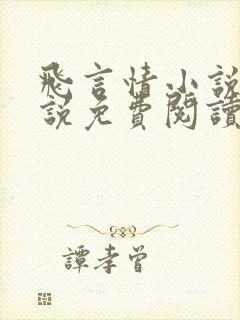 飛言情小說
說免費閱讀
譚孝曾